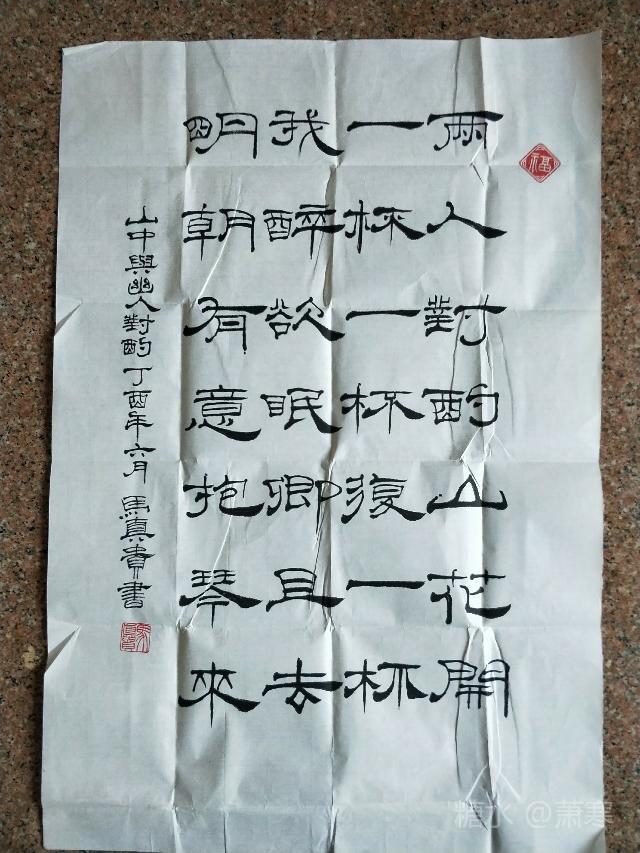 兩人對酌山花開
一杯一杯復一杯
我醉欲眠卿且去
明朝有意抱琴來
山中與幽人對酌丁酉年六月馬真貴書
福
糖水 @萧寒